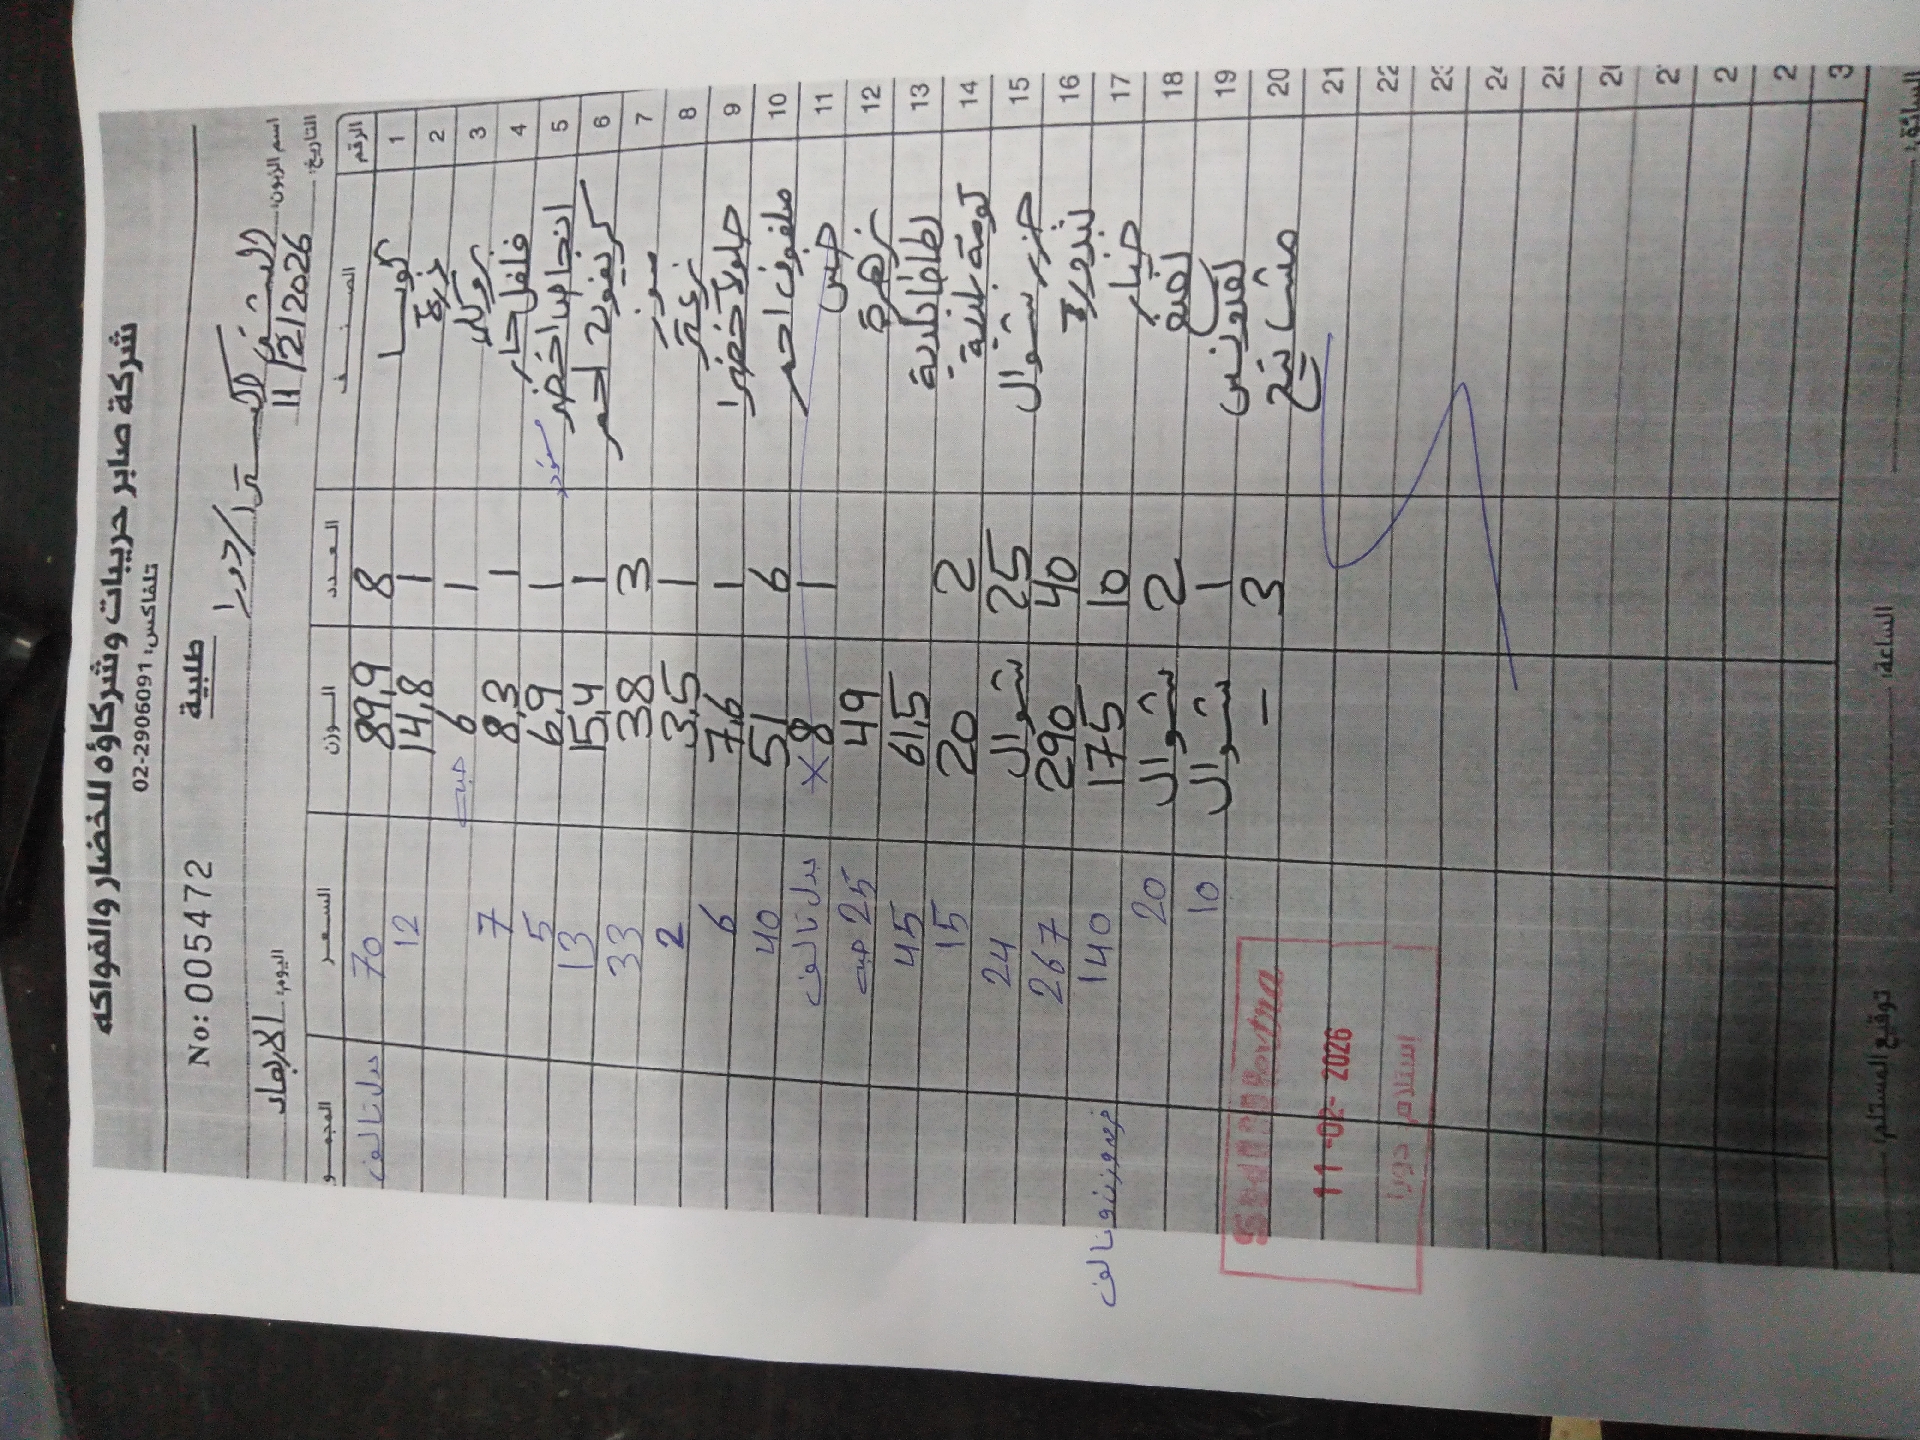 شركة صابر حريبات وشركاؤه للخضار والفواكه
تلفاكس: 02-2906091
طلبية
No: 005472
اسم الزبون: دورا
اليوم: الاربعاء التاريخ: 11/2/2026
الرقم الصنف العدد الوزن السعر المجمو
1 كوسا 8 89,9 70 بدل تالف
2 ذرة 1 14,8 12
3 بروكلي 1 6 حبت
4 فلفل حار 1 8,3 7
5 اخضر 1 6,9 5
6 كريفوت احمر 1 15,4 13
7 موز 3 38 33
8 زعتر 1 3,5 2
9 خضرا 1 7,6 6
10 ملفوف احمر 6 51 40
11 خس 1 8 بدل تالف
12 زهرة 49 25 حبت
13 بطاطا بلدية 61,5 45
14 لومة يابسة 2 20 15
15 جزر شوال 25 شوال 24
16 بندورة 40 290 267
17 خيار 10 175 140 فرق وزن و تالف
18 لفت 2 شوال 20
19 بقدونس 1 شوال 10
20 3 –
21
22
11-02-2026
استلام دورا
توقيع المستلم: الساعة: